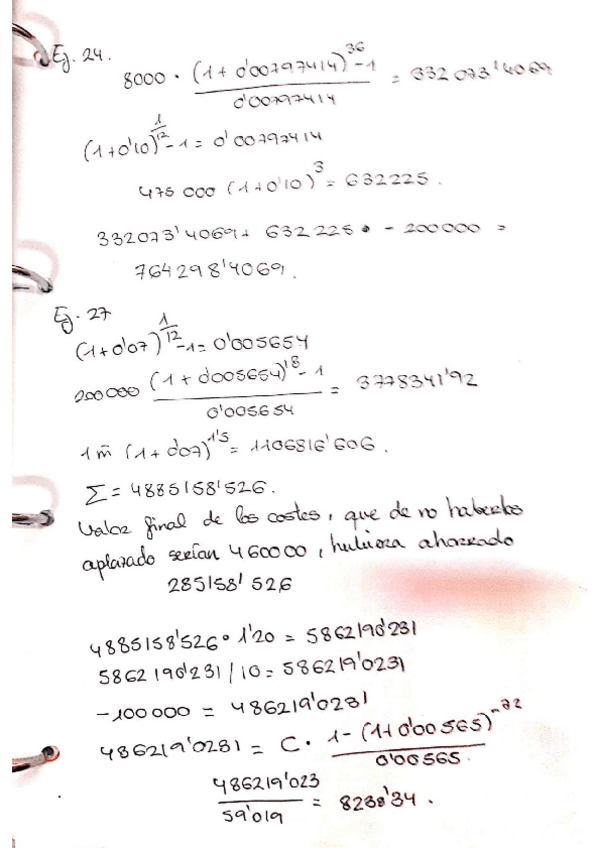 Ej. 24.
8000 · ((1 + 0'00797414)^36 - 1) / 0'00797414 = 332 073'4069
(1+0'10)^(1/12) - 1 = 0'00797414
475 000 (1+0'10)^3 = 632225.
332073'4069 + 632 225 · - 200000 =
764298'4069.
Ej. 27
(1+0'07)^(1/12) - 1 = 0'005654
200000 ((1 + 0'005654)^18 - 1) / 0'005654 = 3778341'92
1 m̃ (1+0'07)^1'5 = 1106816'606.
Σ = 4885158'526.
Valor final de los costes, que de no haberlos
aplazado serían 460000, hubiera ahorrado
285158'526
4885158'526 · 1'20 = 5862190'231
5862190'231 / 10 = 586219'0231
-100000 = 486219'0231
486219'0231 = C · (1 - (1+0'00565)^-72) / 0'00565.
486219'023 / 59'019 = 8238'34.